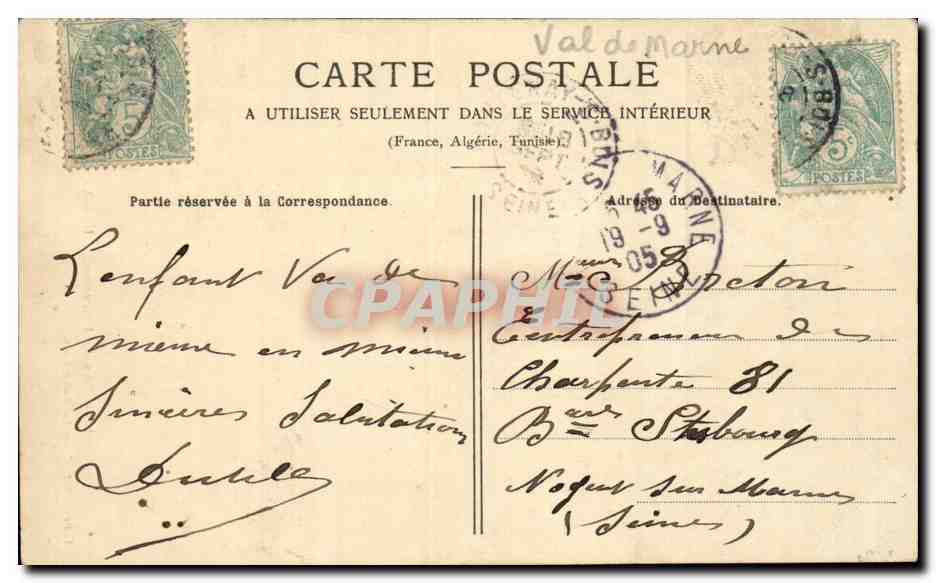 Val de Marne
CARTE POSTALE
A UTILISER SEULEMENT DANS LE SERVICE INTÉRIEUR
(France, Algérie, Tunisie)
5
POSTES
5c
POSTES
SEINE
MARNE
45
19-9
05
SEINE
Partie réservée à la Correspondance.
Adresse du Destinataire.
CPAPHIL
L'enfant Va de
mieux en mieux
Sincères Salutation
Entrepreneur de
Charpente 81
Bard Stsbourg
Nogent sur Marne
(Seine)